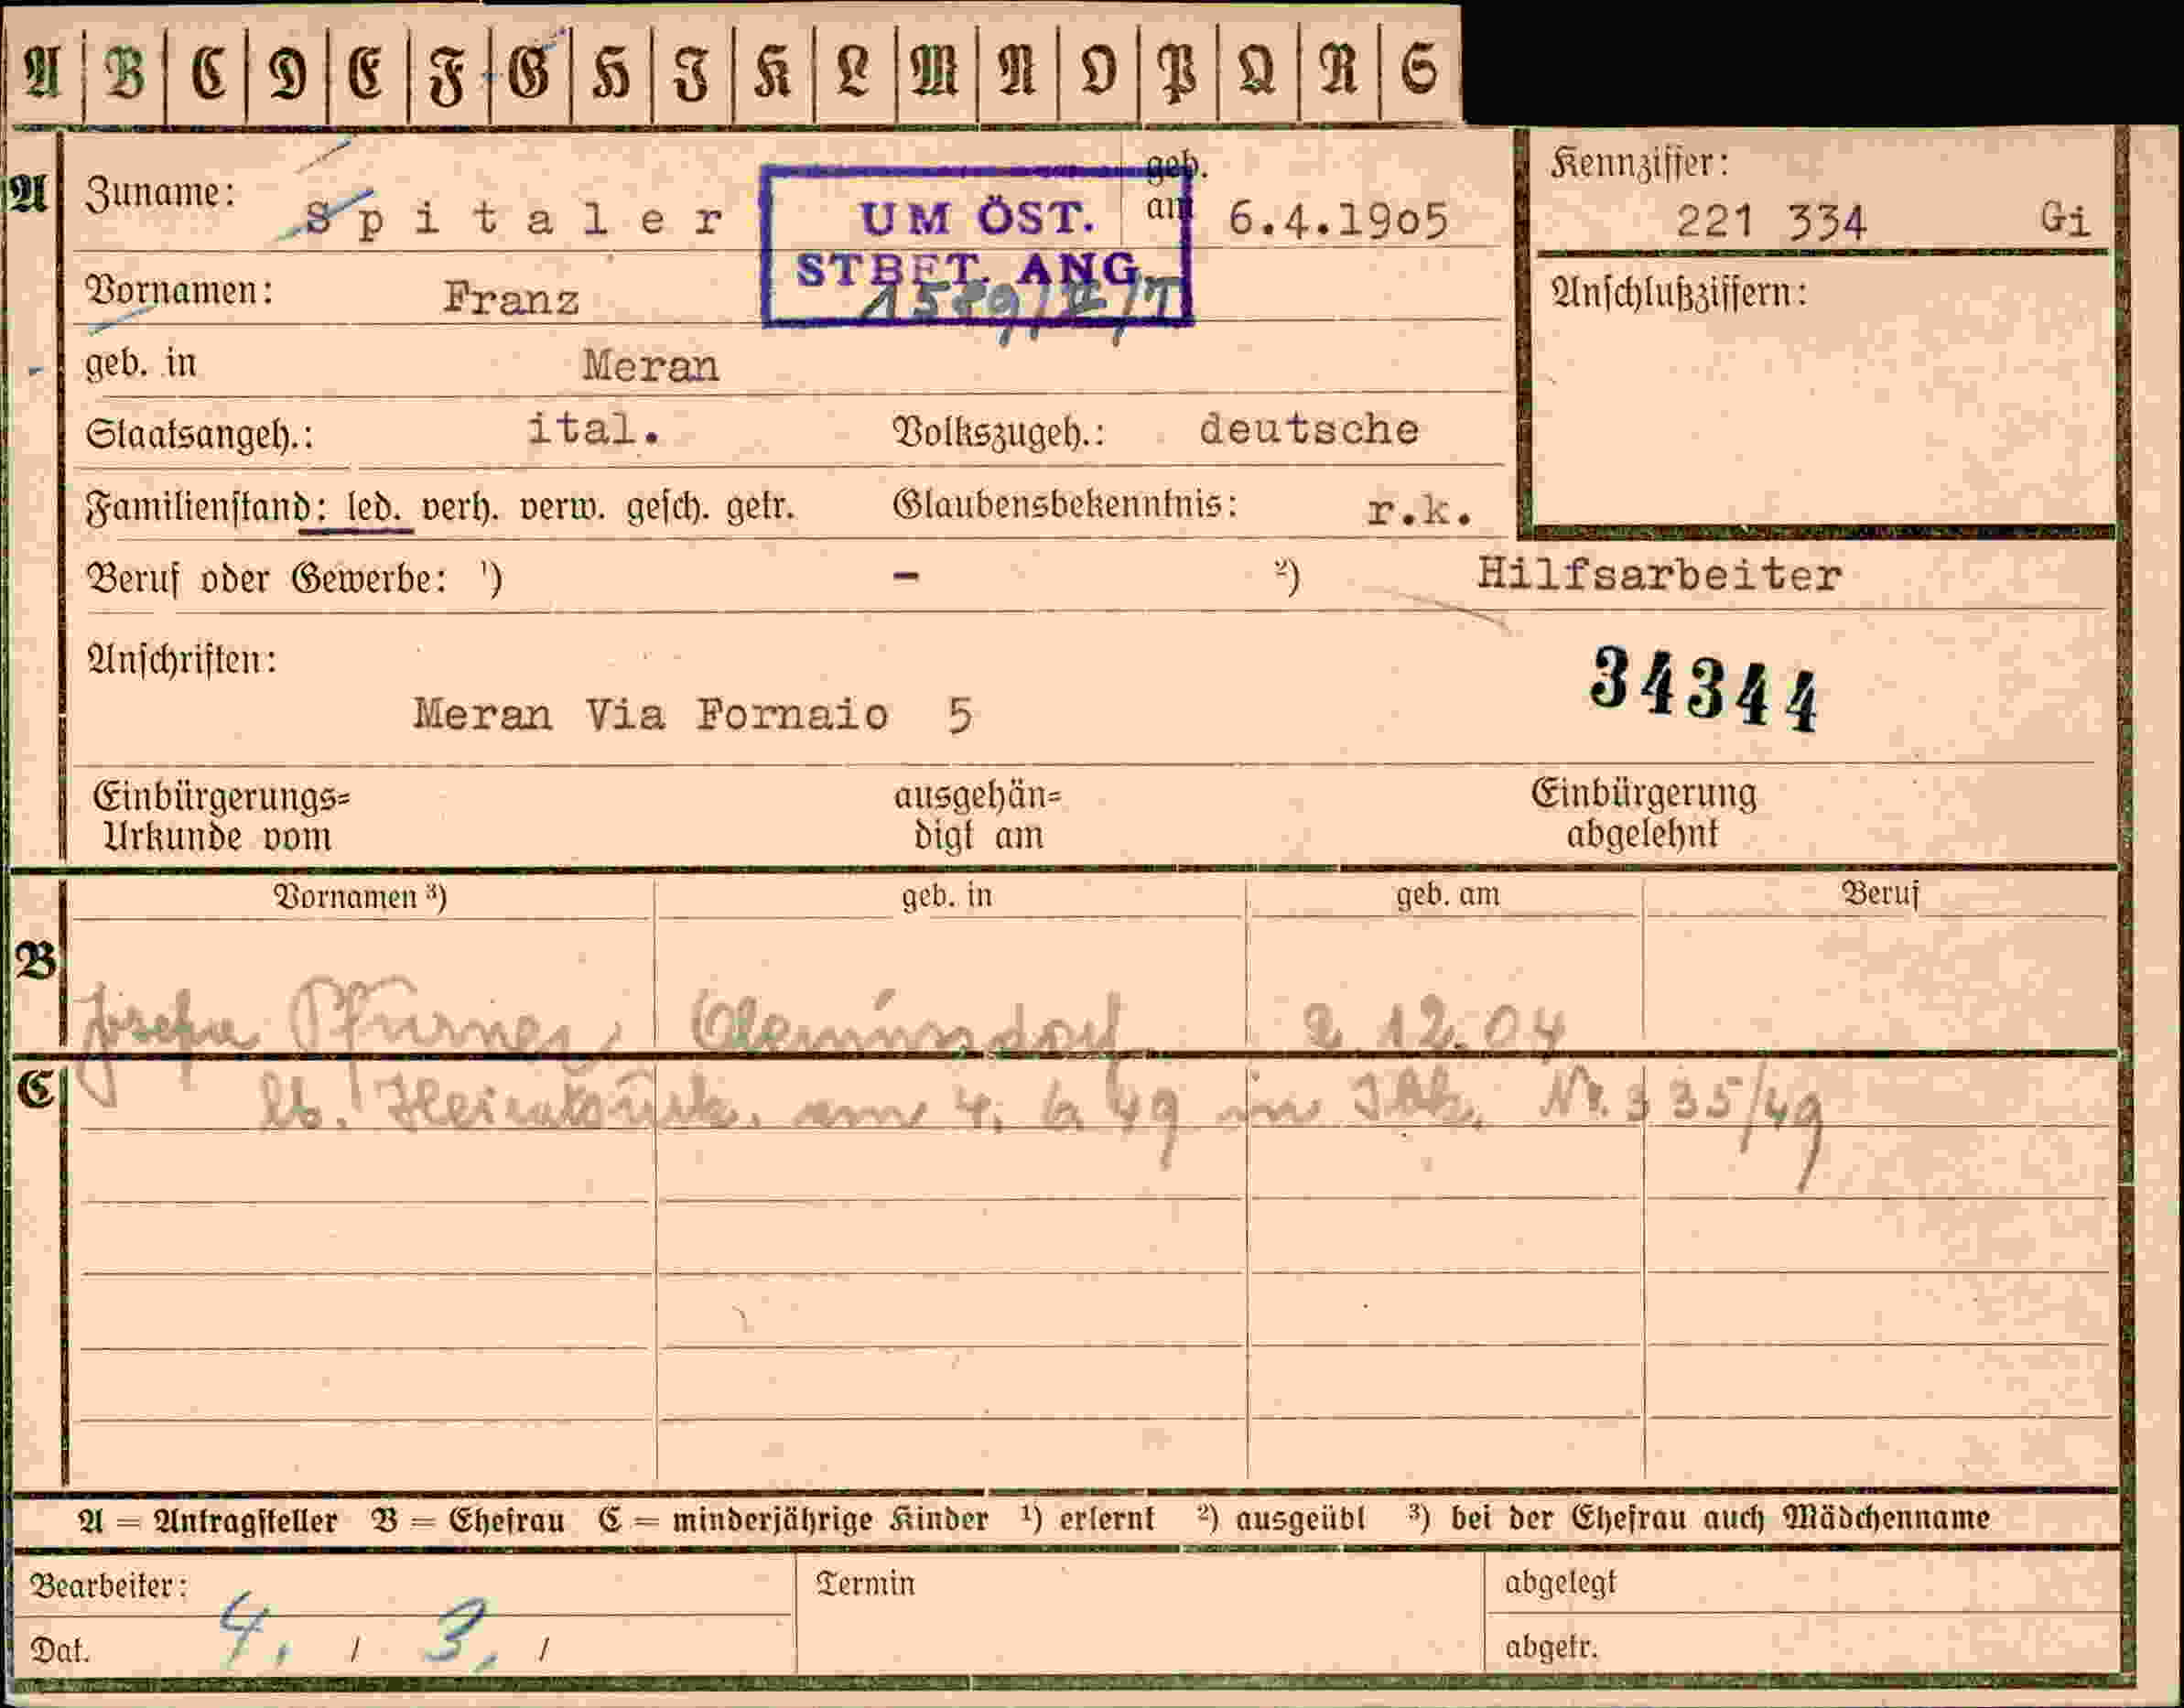 A B C D E F G H J K L M N O P Q R S
A Zuname: Spitaler geb. am 6.4.1905
UM ÖST.
STBET. ANG.
Kennziffer:
221 334 Gi
Vornamen: Franz
Anschlußziffern:
geb. in Meran
Staatsangeh.: ital. Volkszugeh.: deutsche
Familienstand: led. verh. verw. gesch. getr. Glaubensbekenntnis: r.k.
Beruf oder Gewerbe: ¹) - ²) Hilfsarbeiter
Anschriften:
34344
Meran Via Fornaio 5
Einbürgerungs= ausgehän= Einbürgerung
Urkunde vom digt am abgelehnt
Vornamen ³) geb. in geb. am Beruf
B
Josefa Pfurner 2.12.04
C
lt. Heiratsurk. am 4. 6 49 in Ibk. Nr. 335/49
A = Antragsteller B = Ehefrau C = minderjährige Kinder ¹) erlernt ²) ausgeübt ³) bei der Ehefrau auch Mädchenname
Bearbeiter: Termin abgelegt
Dat. 4. / 3. / abgetr.